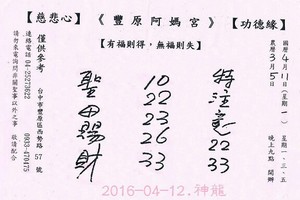 【慈悲心】 《豐原阿媽宮》 【功德緣】
【有福則得，無福則失】
國曆 4月11日 (星期一)
農曆 3月5日
星期一、三、五
晚上九點 開辦
特注意
22
33
10
22
23
26
33
聖母賜財
台中市豐原區西勢路 57 號
僅供參考
連絡電話 04-25273622
0933-470475
請勿來電詢問非關聖事以外之事 敬請配合
2016-04-12.神龍